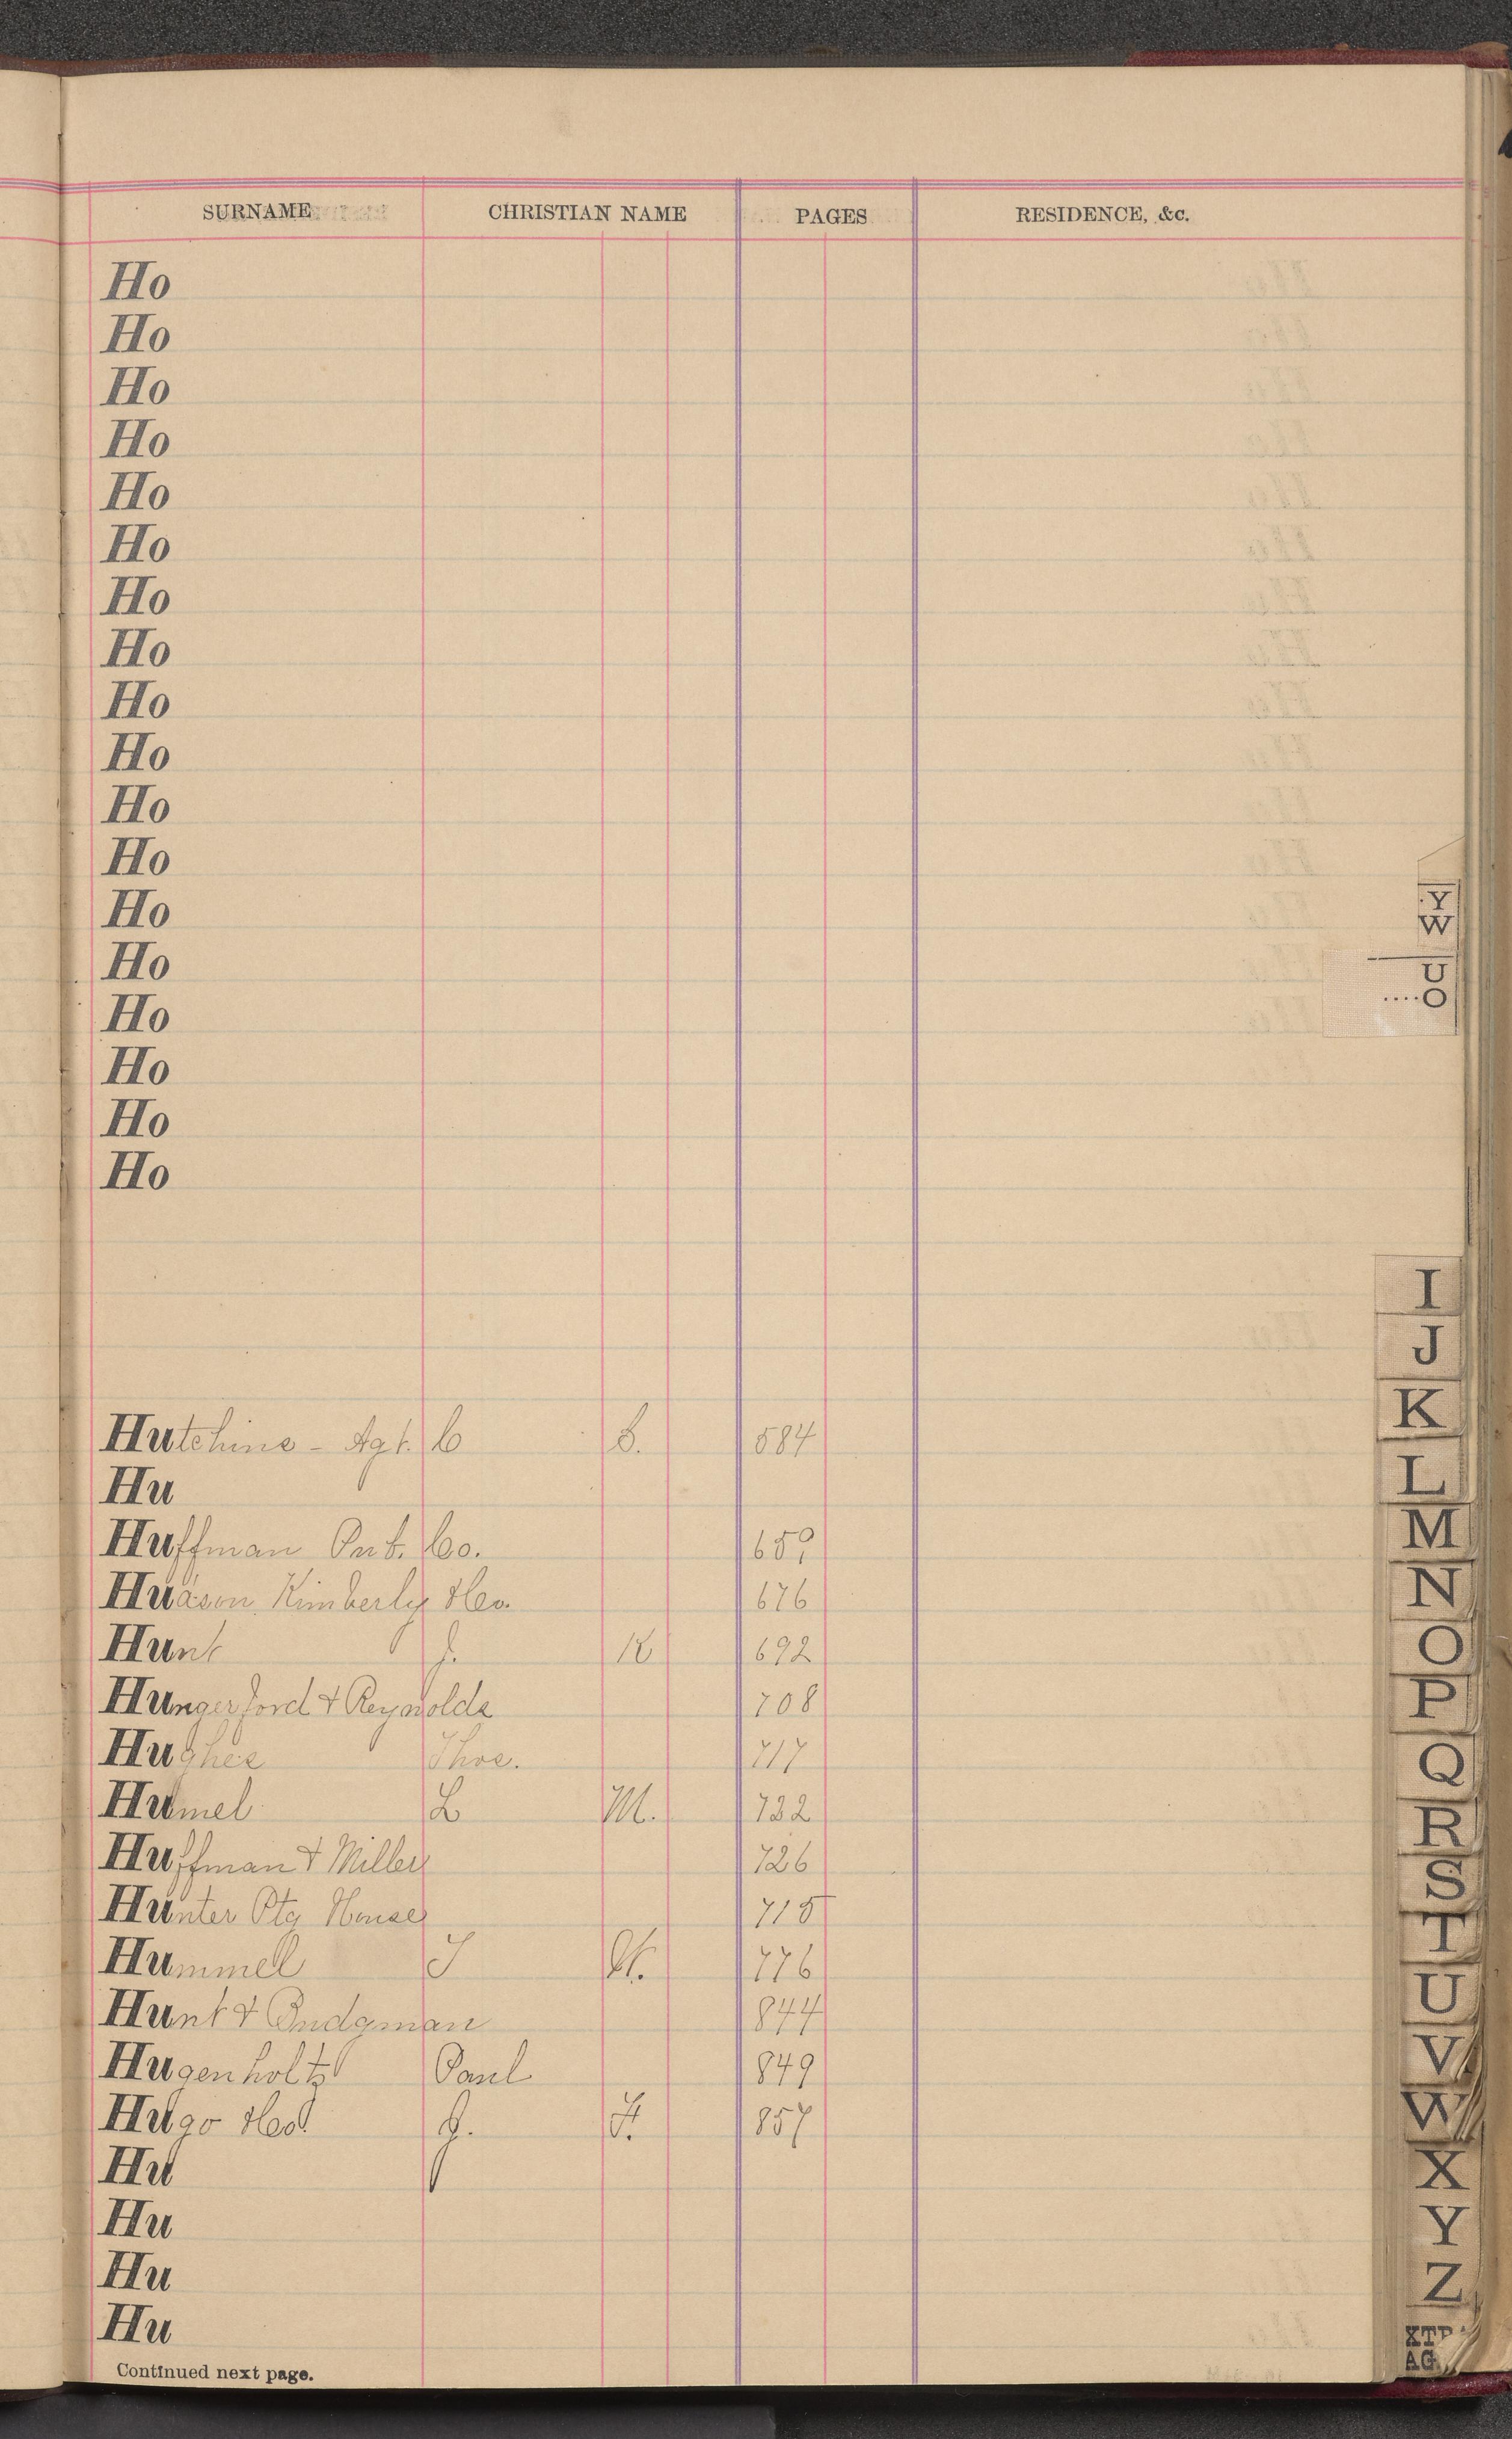 SURNAME CHRISTIAN NAME PAGES RESIDENCE, &c.
Ho
Ho
Ho
Ho
Ho
Ho
Ho
Ho
Ho
Ho
Ho
Ho
Ho
Ho
Ho
Ho
Ho
Ho
Hutchins - Agt. C S. 584
Hu
Huffman Pub. Co. 659
Hudson Kimberly &Co. 676
Hunt J. R 692
Hungerford & Reynolds 708
Hughes Thos. 717
Humel L M. 722
Huffman & Miller 726
Hunter Ptg House 715
Hummel J W. 776
Hunt & Budgman 844
Hugenholtz Paul 849
Hugo &Co J. F. 857
Hu
Hu
Hu
Hu
Continued next page.
Y
W
U
O
I
J
K
L
M
N
O
P
Q
R
S
T
U
V
W
X
Y
Z
XTR
AG